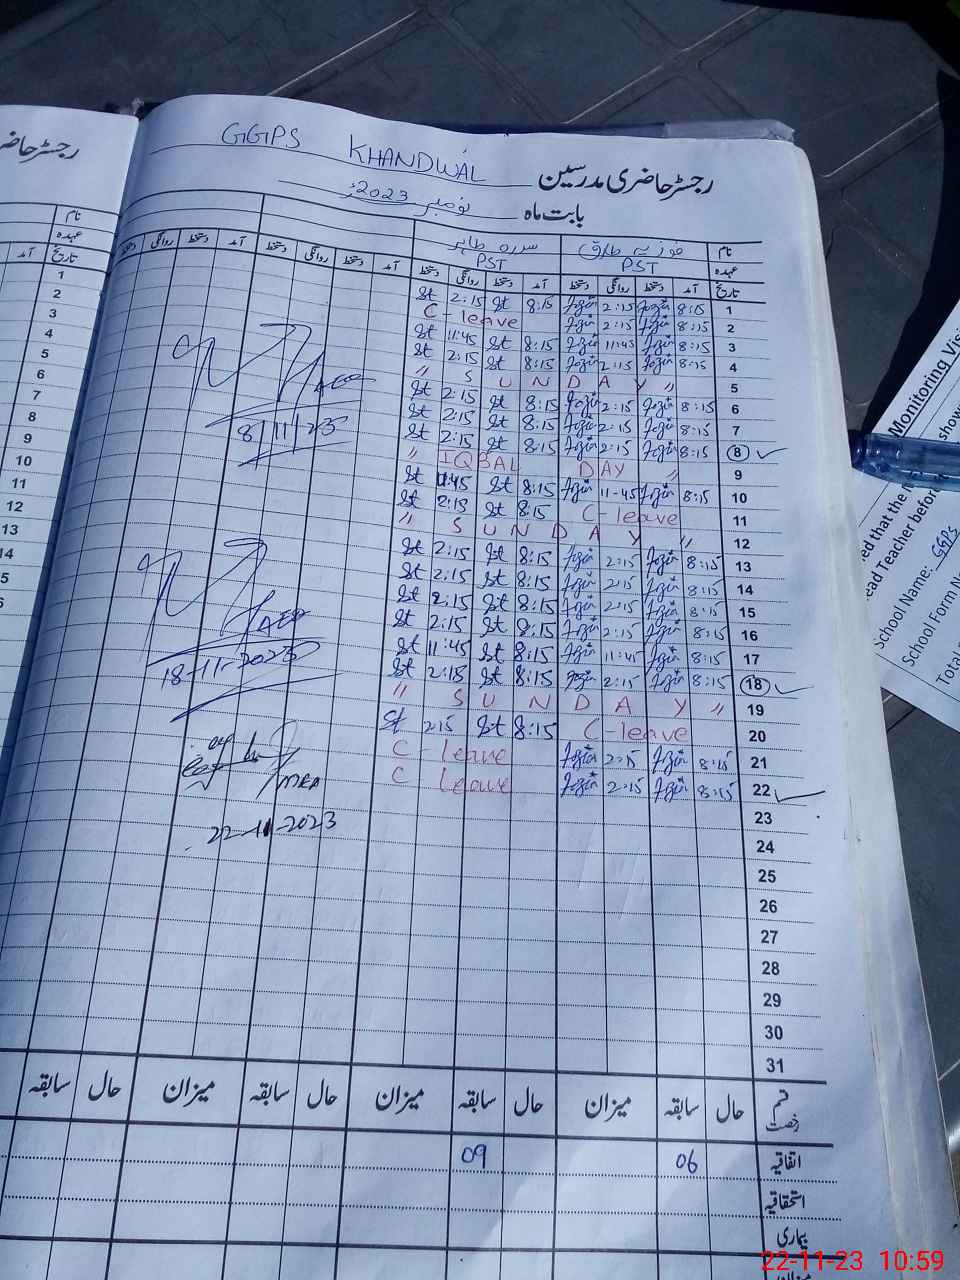 GGPS KHANDWAL
رجسٹر حاضری مدرسین
بابت ماہ نومبر 2023
نام فوزیہ طارق سدرہ طاہر
عہدہ PST PST
تاریخ آمد دستخط روانگی دستخط آمد دستخط روانگی دستخط آمد دستخط روانگی دستخط آمد دستخط روانگی دستخط
St 2:15 St 8:15 Fozia 2:15 Fozia 8:15 1
C-leave Fozia 2:15 Fozia 8:15 2
St 11:45 St 8:15 Fozia 11:45 Fozia 8:15 3
St 2:15 St 8:15 Fozia 2:15 Fozia 8:15 4
" SUNDAY " 5
St 2:15 St 8:15 Fozia 2:15 Fozia 8:15 6
St 2:15 St 8:15 Fozia 2:15 Fozia 8:15 7
St 2:15 St 8:15 Fozia 2:15 Fozia 8:15 8
" IQBAL DAY " 9
St 11:45 St 8:15 Fozia 11-45 Fozia 8:15 10
St 2:15 St 8:15 C-leave 11
" SUNDAY " 12
St 2:15 St 8:15 Fozia 2:15 Fozia 8:15 13
St 2:15 St 8:15 Fozia 2:15 Fozia 8:15 14
St 2:15 St 8:15 Fozia 2:15 Fozia 8:15 15
St 2:15 St 8:15 Fozia 2:15 Fozia 8:15 16
St 11:45 St 8:15 Fozia 11:45 Fozia 8:15 17
St 2:15 St 8:15 Fozia 2:15 Fozia 8:15 18
" SUNDAY " 19
St 2:15 St 8:15 C-leave 20
C-leave Fozia 2:15 Fozia 8:15 21
C leave Fozia 2:15 Fozia 8:15 22
23
24
25
26
27
28
29
30
31
AEO
8/11/23
AEO
18-11-2023
MEA
22-11-2023
قسم رخصت حال سابقہ میزان حال سابقہ میزان حال سابقہ میزان حال سابقہ
اتفاقیہ 06 09
استحقاقیہ
بیماری
میزان
رجسٹر حاضر
نام
عہدہ
تاریخ آمد
1
2
3
4
5
6
7
8
9
10
11
12
13
14
Monitoring Visi
ead Teacher before
School Name: GGPS
School Form No
Total
22-11-23 10:59